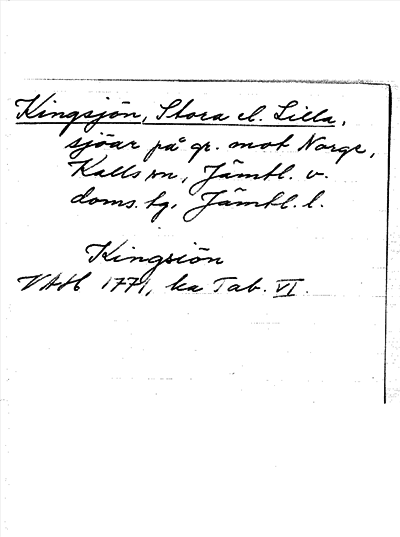 Kingsjön, Stora el. Lilla,
sjöar på gr. mot Norge,
Kalls sn, Jämtl. v.
doms.tg, Jämtl. l.
Kingsiön
VAH 1771, ka Tab. VI.